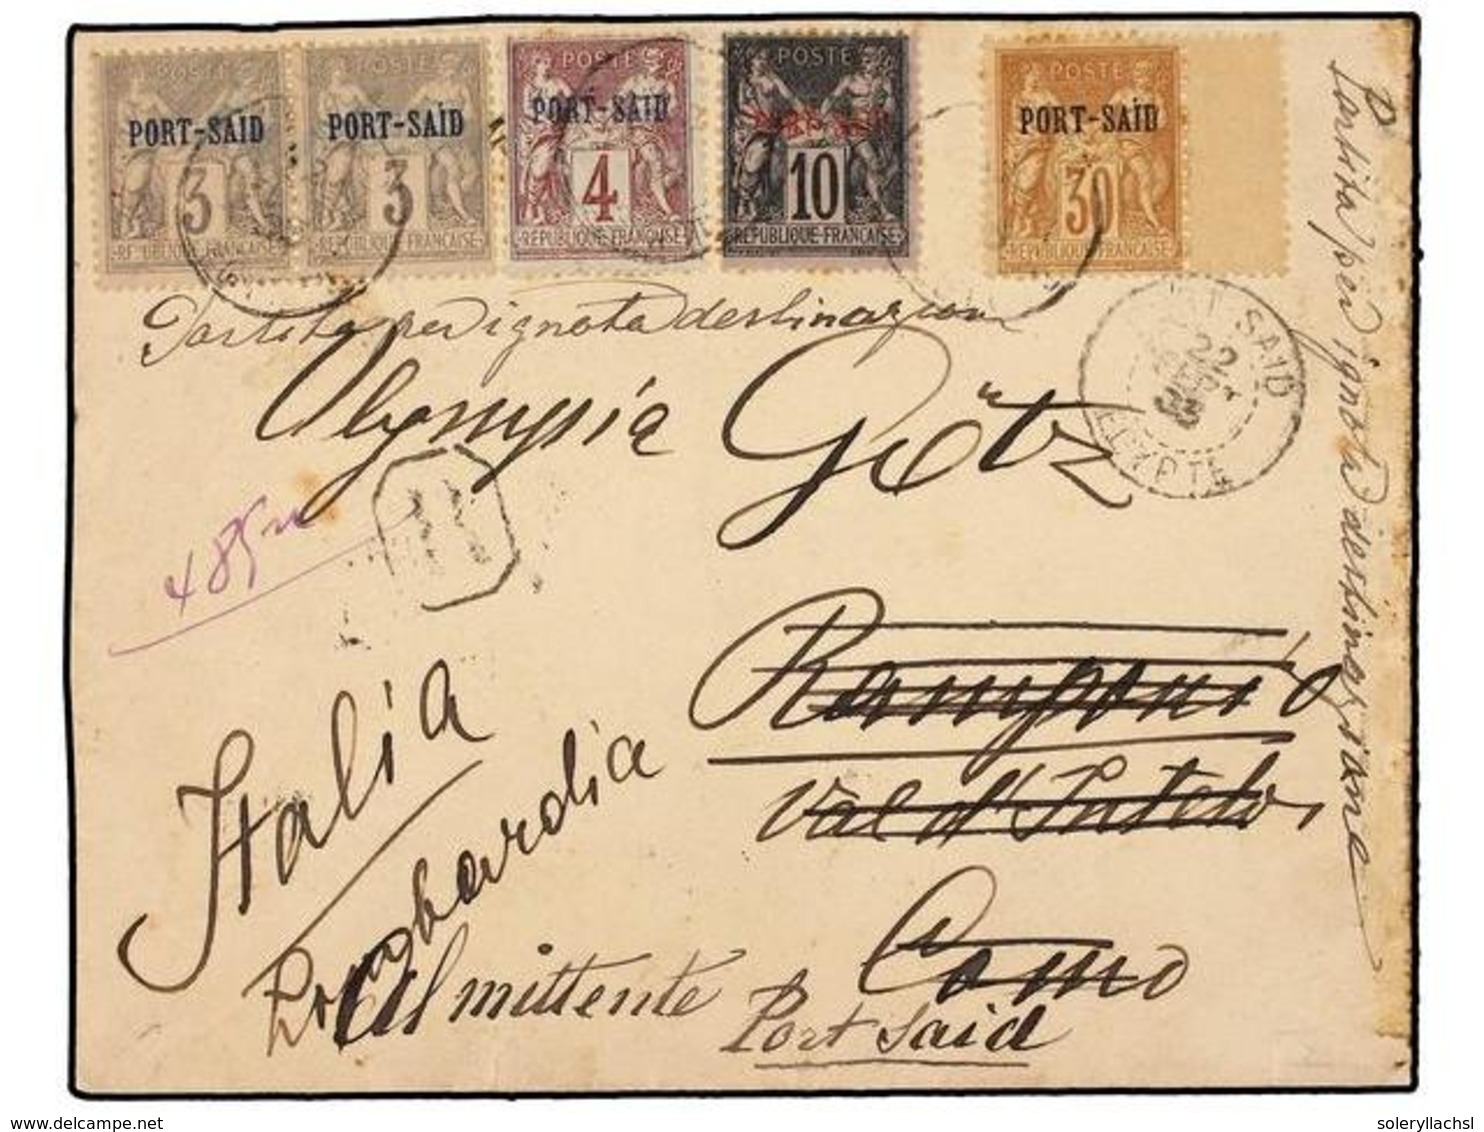 POSTE
PORT-SAÏD
3
REPUBLIQUE FRANÇAISE
POSTE
PORT-SAÏD
3
REPUBLIQUE FRANÇAISE
POSTE
PORT-SAÏD
4
REPUBLIQUE FRANÇAISE
POSTE
PORT-SAÏD
10
REPUBLIQUE FRANÇAISE
POSTE
PORT-SAÏD
30
REPUBLIQUE FRANÇAISE
Partita per ignota destinazione
PORT SAID
22
SEPT
EGYPTE
Olympia Götz
485
R
Ramponio
Val d'Intelvi
Como
Italia
Lombardia
Al mittente
Port Said
Partita per ignota destinazione
www.delcampe.net
soleryllachsl